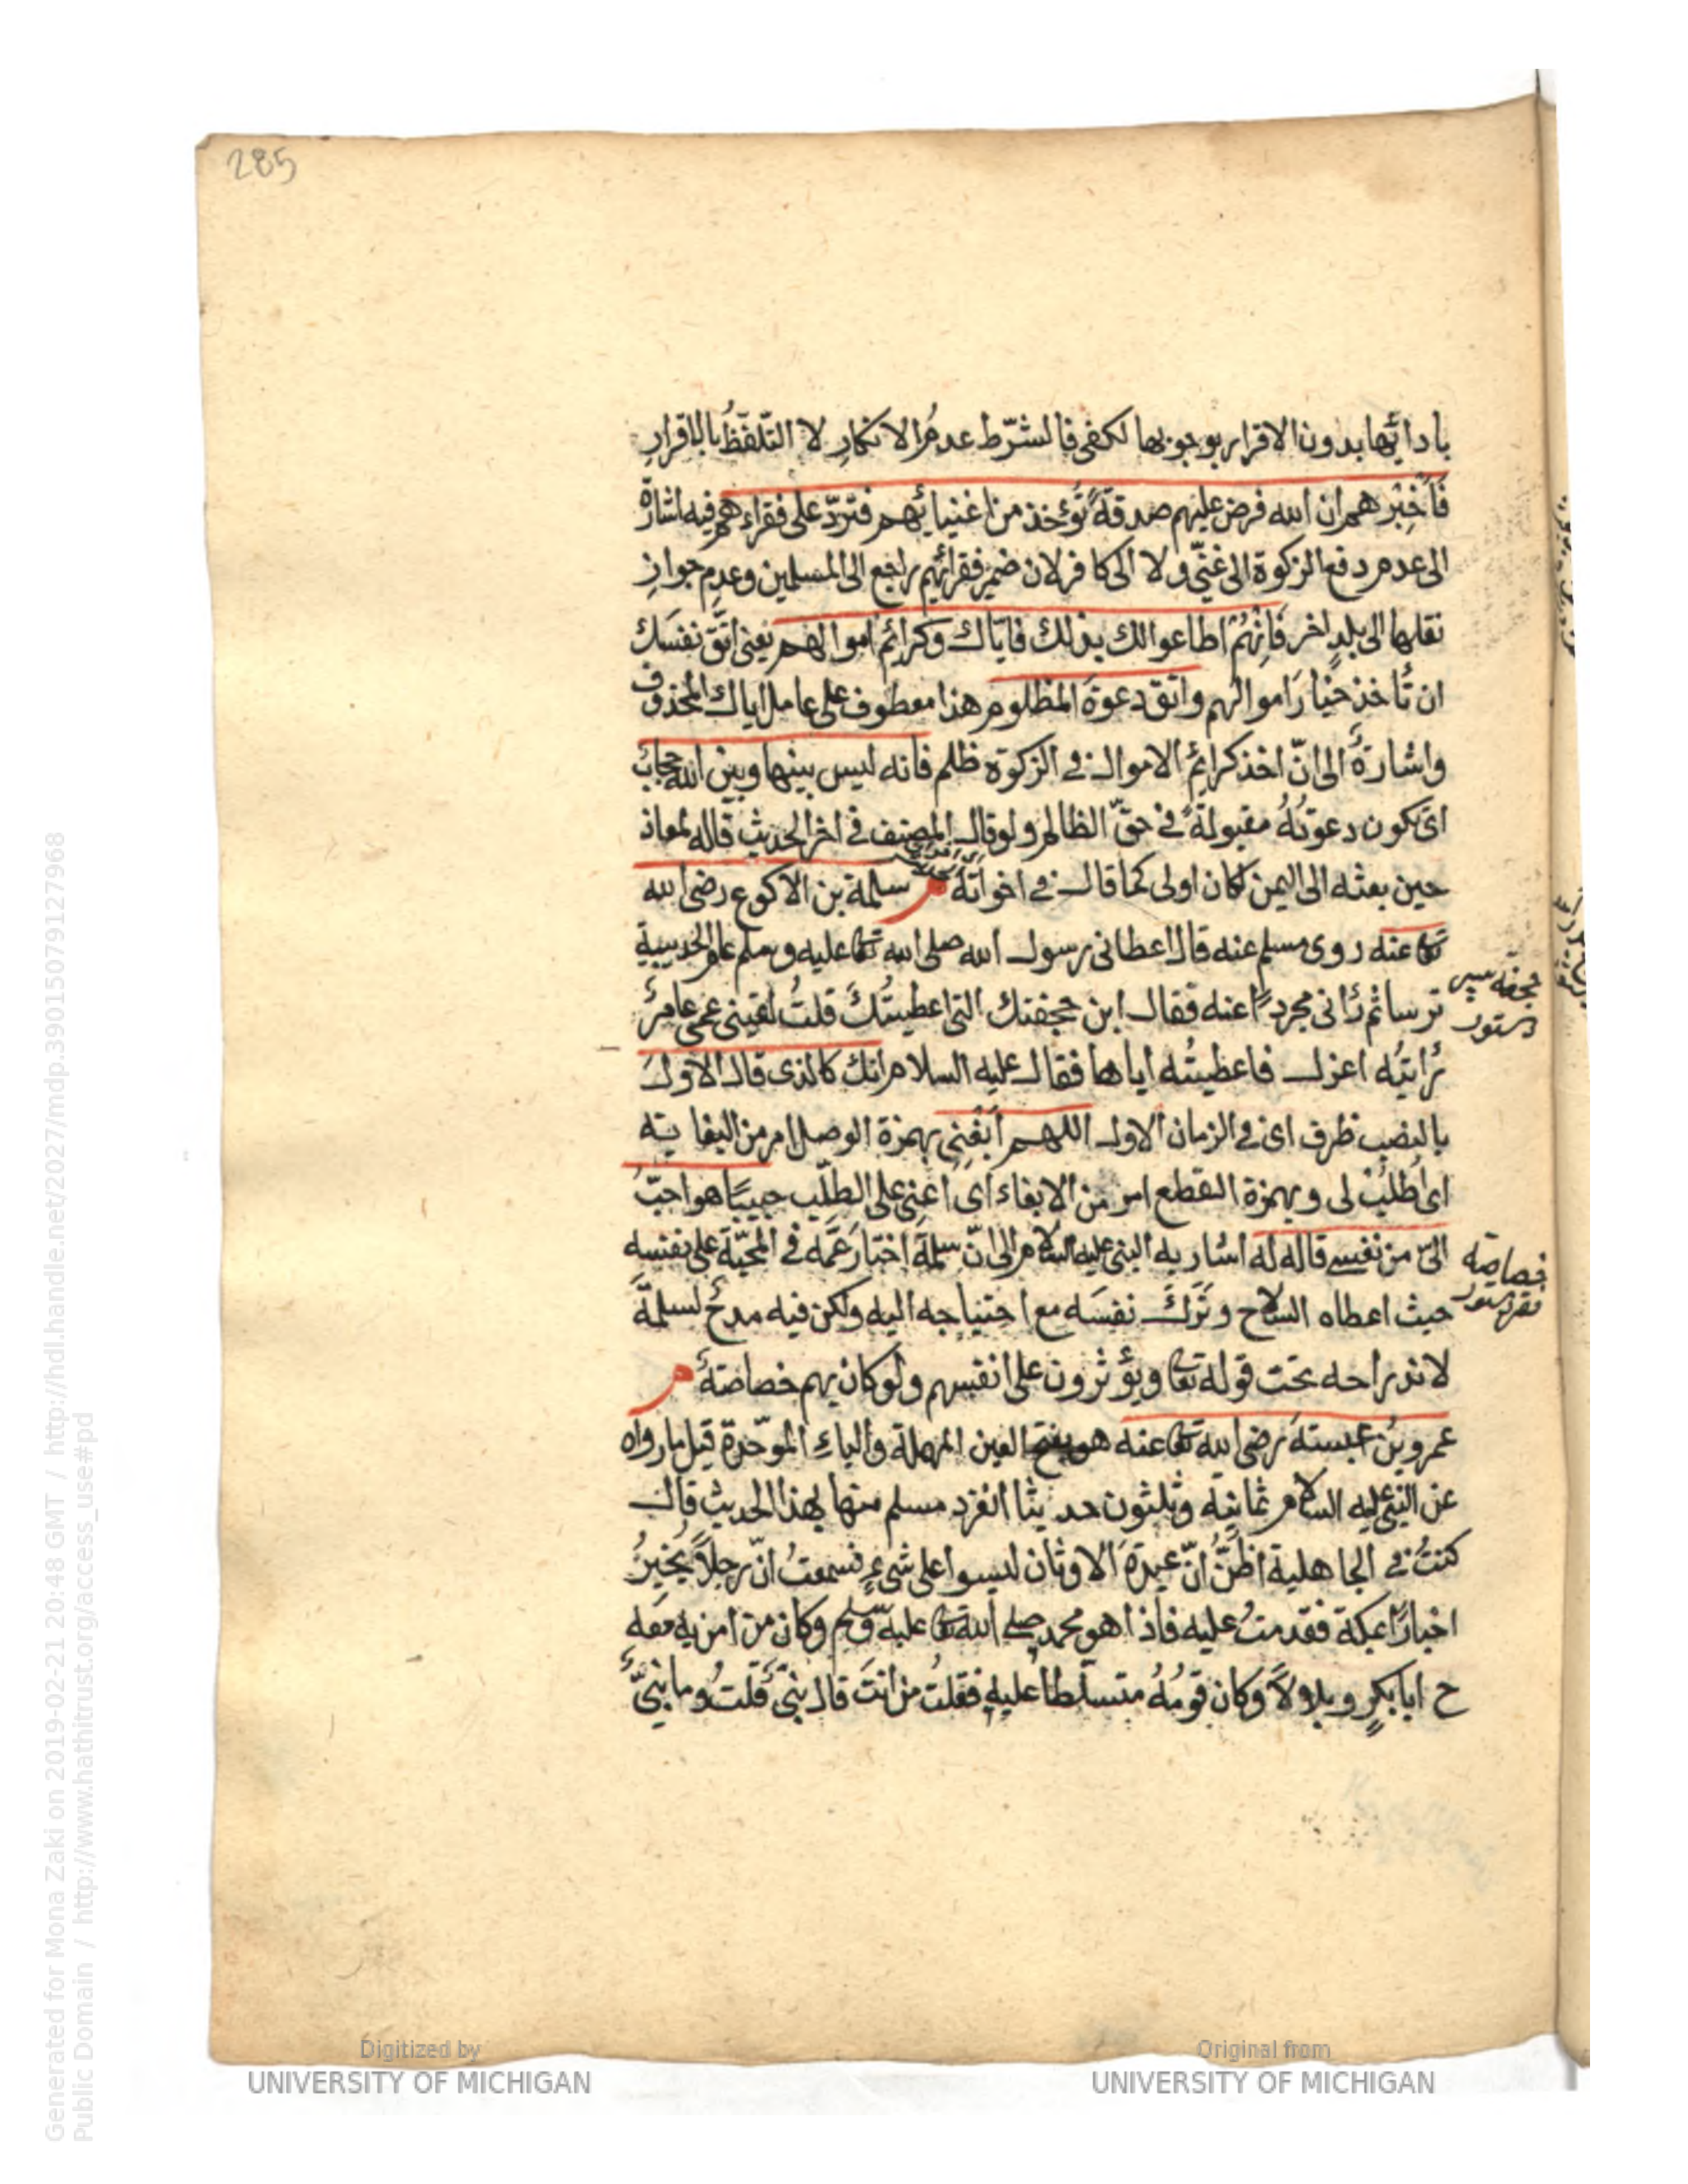 285
بادائها بدون الاقرار بوجوبها لكفى فالشّرط عدمُ الانكارِ لا التّلفّظُ بالاقرارِ
فَاَخْبِرْهم ان الله فرض عليهم صدقةً تُؤخذ من اغنيائهم فتردّ على فقراءهم فيه اشارة
الى عدم دفع الزكوة الى غنىّ ولا الى كافر لان ضمير فقرائهم راجع الى المسلمين وعدم جواز
نقلها الى بلد اخر فَاِنْهُمْ اطاعوا لك بذلك فايّاك وكرائم اموالهم يعنى اتّق نفسَك
ان تاخذ خيارَ اموالهم واتّق دعوةَ المظلوم هذا معطوف على عامل اياك المحذوف
واشارةٌ الى انّ اخذ كرائمِ الاموال فى الزكوة ظلم فانه ليس بينها وبين الله حجابٌ
اى يكون دعوتُهُ مقبولةً فى حقّ الظالم ولو قال المصنف فى اخر الحديث قاله لمعاذ
حين بعثه الى اليمن لكان اولى كما قال فى اخواته م سلمة بن الاكوع رضى الله
تع عنه روى مسلم عنه قال اعطانى رسول الله صلى الله تع عليه وسلم عام الحديبية
ترسا ثم رَانى مجردًا عنه فقال اين حجفتك التى اعطيتُكَ قلتُ لقينى عمى عامرٌ
رايتُه اعزل فاعطيتُه اياها فقال عليه السلام انك كالذى قال الاول
بالنصب ظرف اى فى الزمان الاول اللهم ابْغِنى بهمزة الوصل امر من البغاية
اى اُطْلُبْ لى وبهمزة القطع امر من الابغاء اى اَعنى على الطلب حبيبًا هو احبّ
الىّ من نفسى قاله له اشار به النبى عليه السلام الى انّ سلمةَ اختار عَمَّه فى المحبّة على نفسه
حيث اعطاه السلاح وتَركَ نفسَه مع احتياجه اليه ولكن فيه مدحٌ لسلمةَ
لاندراجه تحت قوله تع ويؤثرون على انفسهم ولو كان بهم خصاصةٌ م
عمرو بن عبسة رضى الله تع عنه هو بفتح العين المهملة والباءِ الموحّدة قيل ما رواه
عن النبى عليه السلام ثمانية وثلثون حديثا انفرد مسلم منها بهذا الحديث قال
كنتُ فى الجاهلية اظنُّ انّ عبدةَ الاوثان ليسوا على شىءٍ فسمعتُ انّ رجلاً يُخبِرُ
اخبارًا بمكة فقدمتُ عليه فاذا هو محمد صلى الله تع عليه وسلم وكان من امن به معه
ح ابا بكرٍ وبلالاً وكان قومُهُ متسلّطا عليه فقلتُ من انتَ قال نبىٌّ قلتُ وما نبىٌّ
حجفه سپر
دستور
خصاصه
فقر دستور
Digitized by
UNIVERSITY OF MICHIGAN
Original from
UNIVERSITY OF MICHIGAN
Generated for Mona Zaki on 2019-02-21 20:48 GMT / http://hdl.handle.net/2027/mdp.39015079127968
Public Domain / http://www.hathitrust.org/access_use#pd